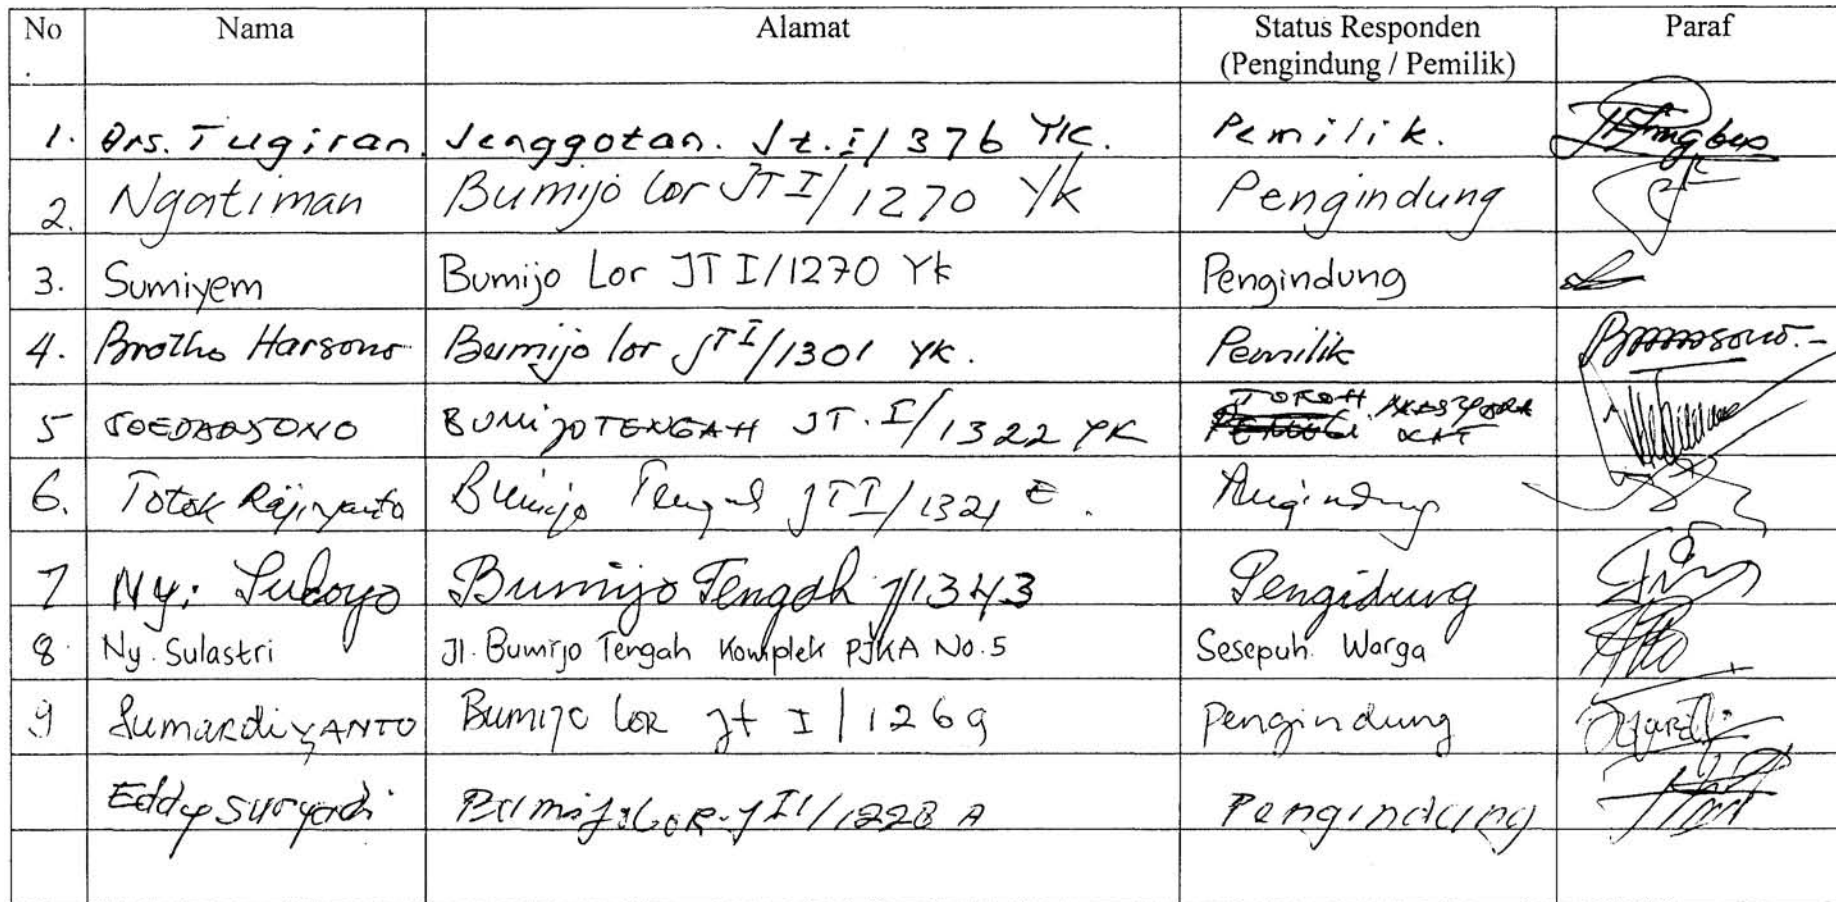 No Nama Alamat Status Responden Paraf
. (Pengindung / Pemilik)
1. Drs. Tugiran. Jenggotan. Jt. I/376 YK. Pemilik.
2. Ngatiman Bumijo Lor JT I/1270 Yk Pengindung
3. Sumiyem Bumijo Lor JT I/1270 Yk Pengindung
4. Brotho Harsono Bumijo lor JT I/1301 YK. Pemilik
TOKOH
5 BUMIJO TENGAH JT. I/1322 YK
6. Totok Bumijo Tengah JT I/1321 E. Pengindung
7 Ny. Bumijo Tengah 1343 Pengidung
8. Ny. Sulastri Jl. Bumijo Tengah Komplek PJKA No. 5 Sesepuh Warga
9 SumardiyANTO Bumijo LOR Jt I/1269 Pengindung
Eddy Suryadi Bumijo LOR 1228 A Pengindung